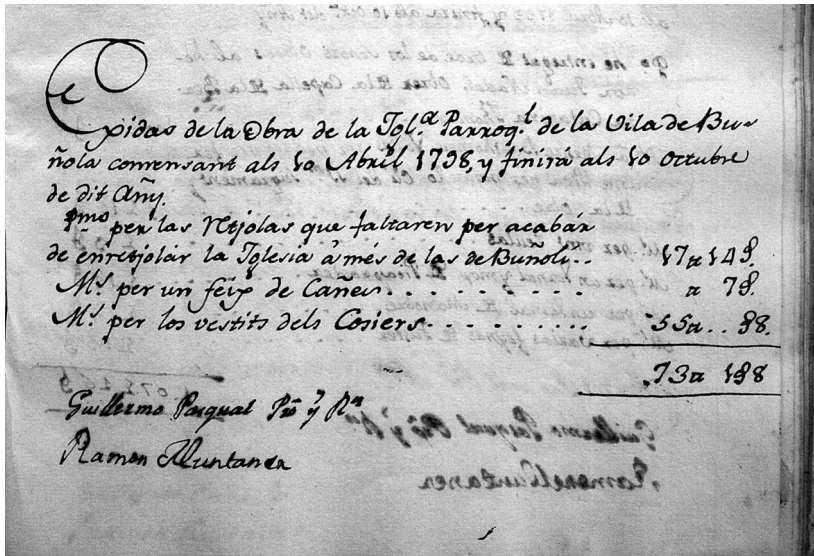 Exidas de la Obra de la Igl.ª Parroq.l de la Vila de Bu-
ñola comensant als 10 Abril 1798, y finirá als 10 octubre
de dit Añy.
P.mo per las Retjolas que faltaren per acabár
de enretjolar la Iglesia á més de las de Buñola.. 17 ₶ 14 ₰.
M.s per un feix de Cañes......... ₶ 7 ₰.
M.s per los vestits dels Cosiers.......... 55 ₶ .. ₰ 8.
73 ₶ 1 ₰ 8
Guillermo Pasqual Pro y Rr
Ramon Muntaner